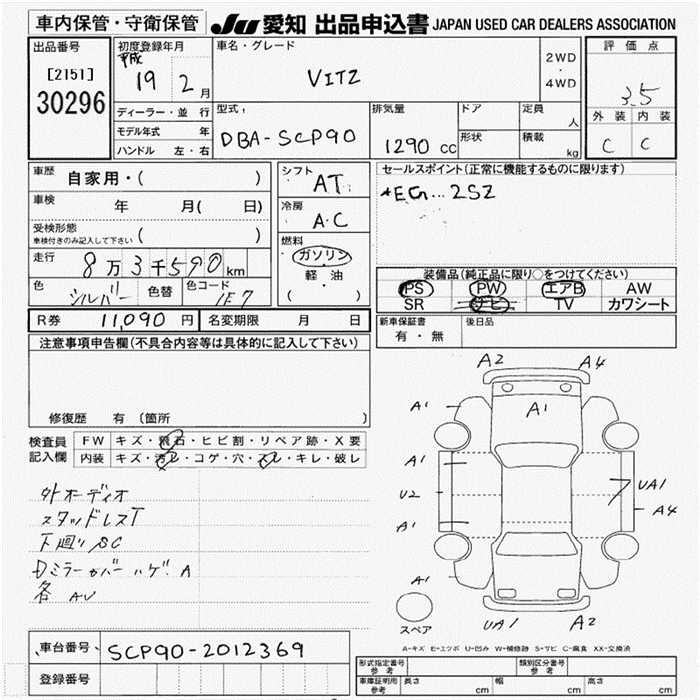 車内保管・守衛保管 JU 愛知 出品申込書 JAPAN USED CAR DEALERS ASSOCIATION
出品番号
[2151]
30296
初度登録年月
平成
19 2月
車名・グレード
VITZ
2WD
・
4WD
評価点
3.5
外装 内装
C C
ディーラー・並行
モデル年式 年
ハンドル 左・右
型式:
DBA-SCP90
排気量
1290 cc
ドア
形状
定員
人
積載
kg
車歴
自家用・( )
車検
年 月( 日)
受検形態
車検付きのみ記入して下さい ( )
走行
8万3千590km
色
シルバー 色替
色コード
1E7
シフト
AT
冷房
A・C
燃料
ガソリン
・
軽・油
( )
セールスポイント(正常に機能するものに限ります)
*EG...2SZ
装備品(純正品に限り○をつけてください)
PS PW エアB AW
SR ナビ TV カワシート
R券 11,090 円 名変期限 月 日
新車保証書
有・無
後日品
注意事項申告欄(不具合内容等は具体的に記入して下さい)
修復歴 有 〔箇所 〕
検査員
記入欄
FW キズ・飛石・ヒビ割・リペア跡・X要
内装 キズ・汚レ・コゲ・穴・スレ・キレ・破レ
外オーディオ
スタッドレスT
下廻りSC
Dミラーカバーハゲ A
各 AU
A2 A4
A1 A1
A1
U2 UA1
A4
A1
A1
UA1 A2
スペア
A-キズ E-エクボ U-凹み W-補修跡 S-サビ C-腐食 XX-交換済
車台番号 SCP90-2012369
登録番号
形式指定番号
参考
類別区分番号
参考
車庫証明用
参考
長さ cm 幅 cm 高さ cm